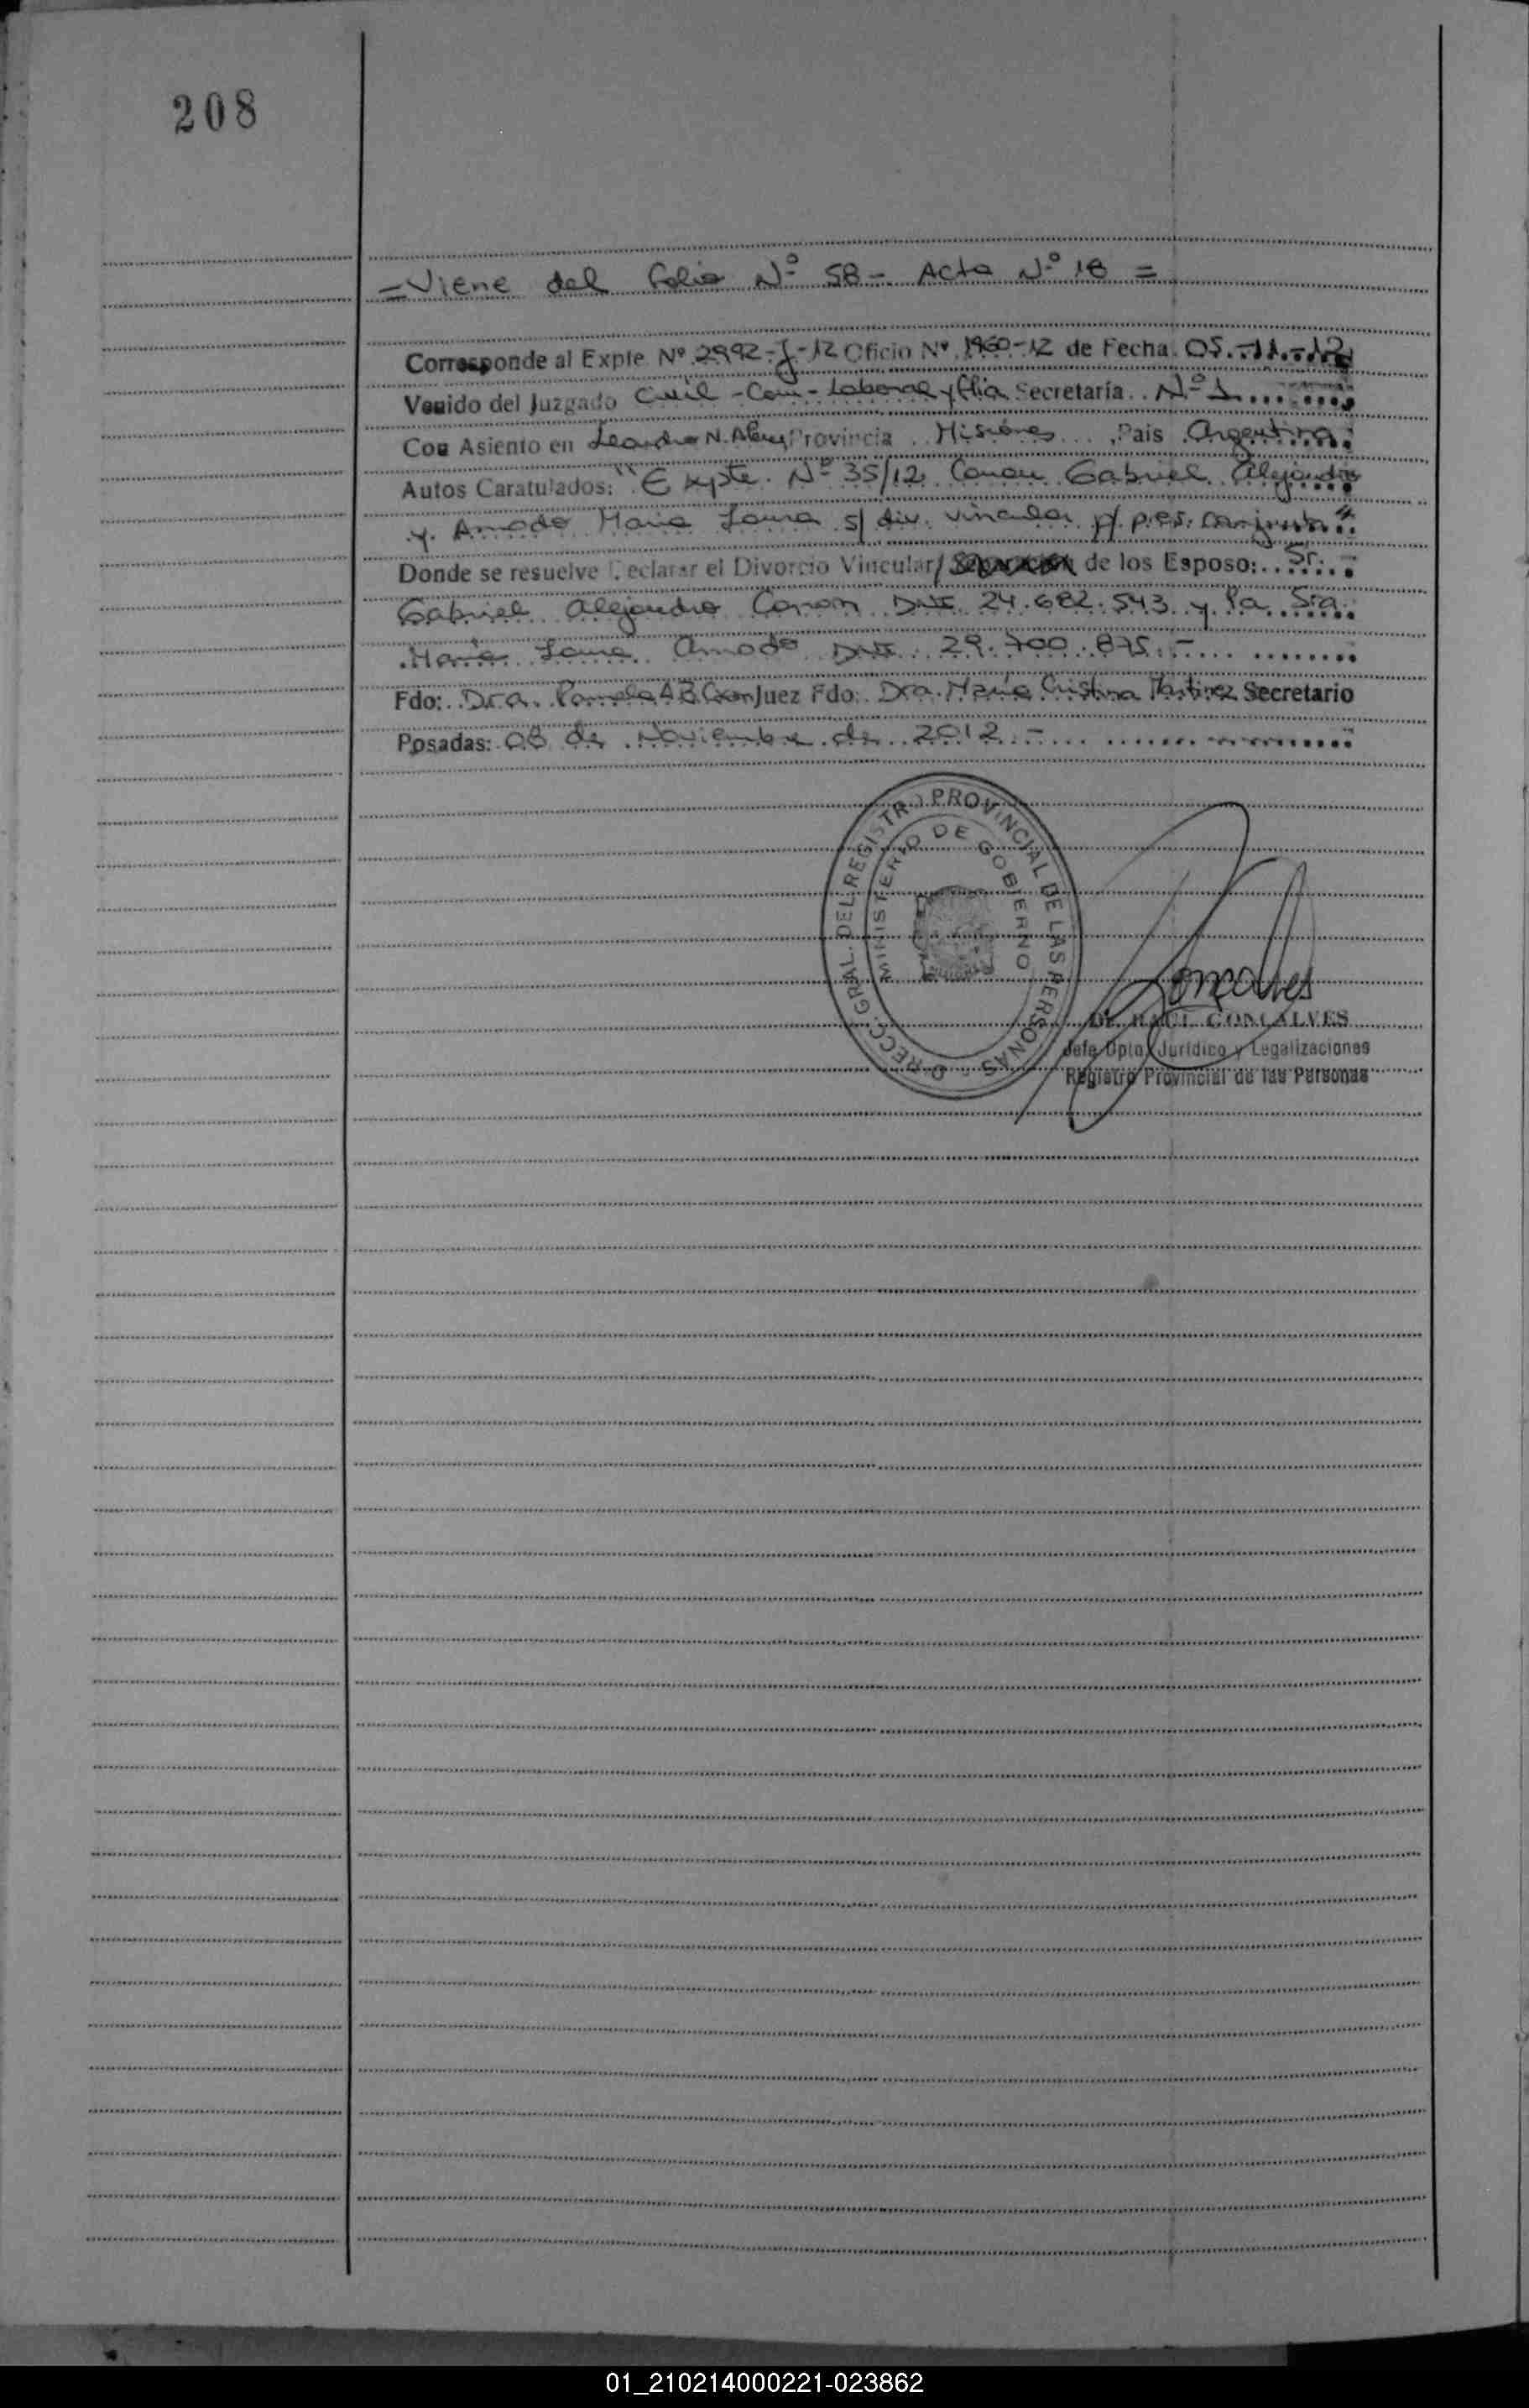 208
- Viene del folio Nº 58 - Acta Nº 18 =
Corresponde al Expte. Nº 2992-J-12 Oficio Nº 1960-12 de Fecha 05.-11.-12
Venido del Juzgado Civil - Com - Laboral y flia Secretaría Nº 1
Con Asiento en Leandro N. Alem Provincia Misiones Pais Argentina
Autos Caratulados: "Expte. Nº 35/12 Gabriel Alejandro
y Amado Maria Laura s/ div. vincular p/ pres. conjunta"
Donde se resuelve Declarar el Divorcio Vincular/ de los Esposo: Sr.
Gabriel Alejandro DNI 24.682.543 y la Sra.
Maria Laura Amado DNI 29.700.875.-
Fdo: Dra. Pamela A. B. Juez Fdo: Dra. María Cristina Martinez Secretario
Posadas: 08 de Noviembre de 2012.-
DIRECC. GRAL. DEL REGISTRO PROVINCIAL DE LAS PERSONAS
MINISTERIO DE GOBIERNO
Gonçalves
RAUL GONCALVES
Jefe Dpto. Jurídico y Legalizaciones
Registro Provincial de las Personas
01_210214000221-023862